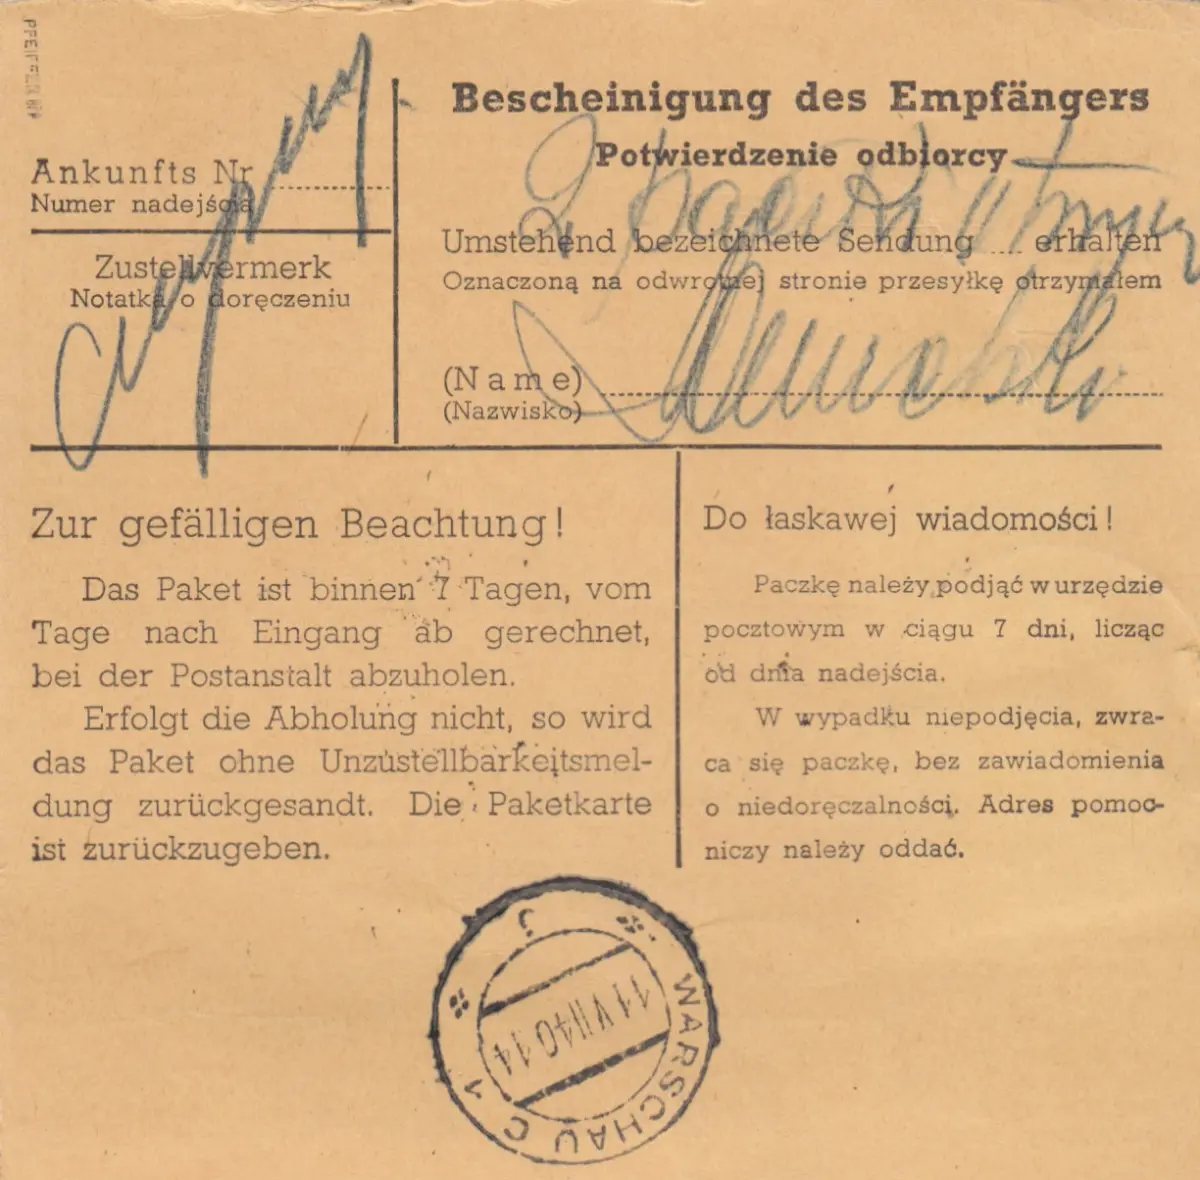 Bescheinigung des Empfängers
Potwierdzenie odbiorcy
Ankunfts Nr
Numer nadejścia
Umstehend bezeichnete Sendung .... erhalten
Oznaczoną na odwrotnej stronie przesyłkę otrzymałem
Zustellvermerk
Notatka o doręczeniu
(Name)
(Nazwisko)
2
Zur gefälligen Beachtung!
Das Paket ist binnen 7 Tagen, vom
Tage nach Eingang ab gerechnet,
bei der Postanstalt abzuholen.
Erfolgt die Abholung nicht, so wird
das Paket ohne Unzustellbarkeitsmel-
dung zurückgesandt. Die Paketkarte
ist zurückzugeben.
Do łaskawej wiadomości!
Paczkę należy podjąć w urzędzie
pocztowym w ciągu 7 dni, licząc
od dnia nadejścia.
W wypadku niepodjęcia, zwra-
ca się paczkę, bez zawiadomienia
o niedoręczalności. Adres pomoc-
niczy należy oddać.
WARSCHAU C 1
11 VII 40 14